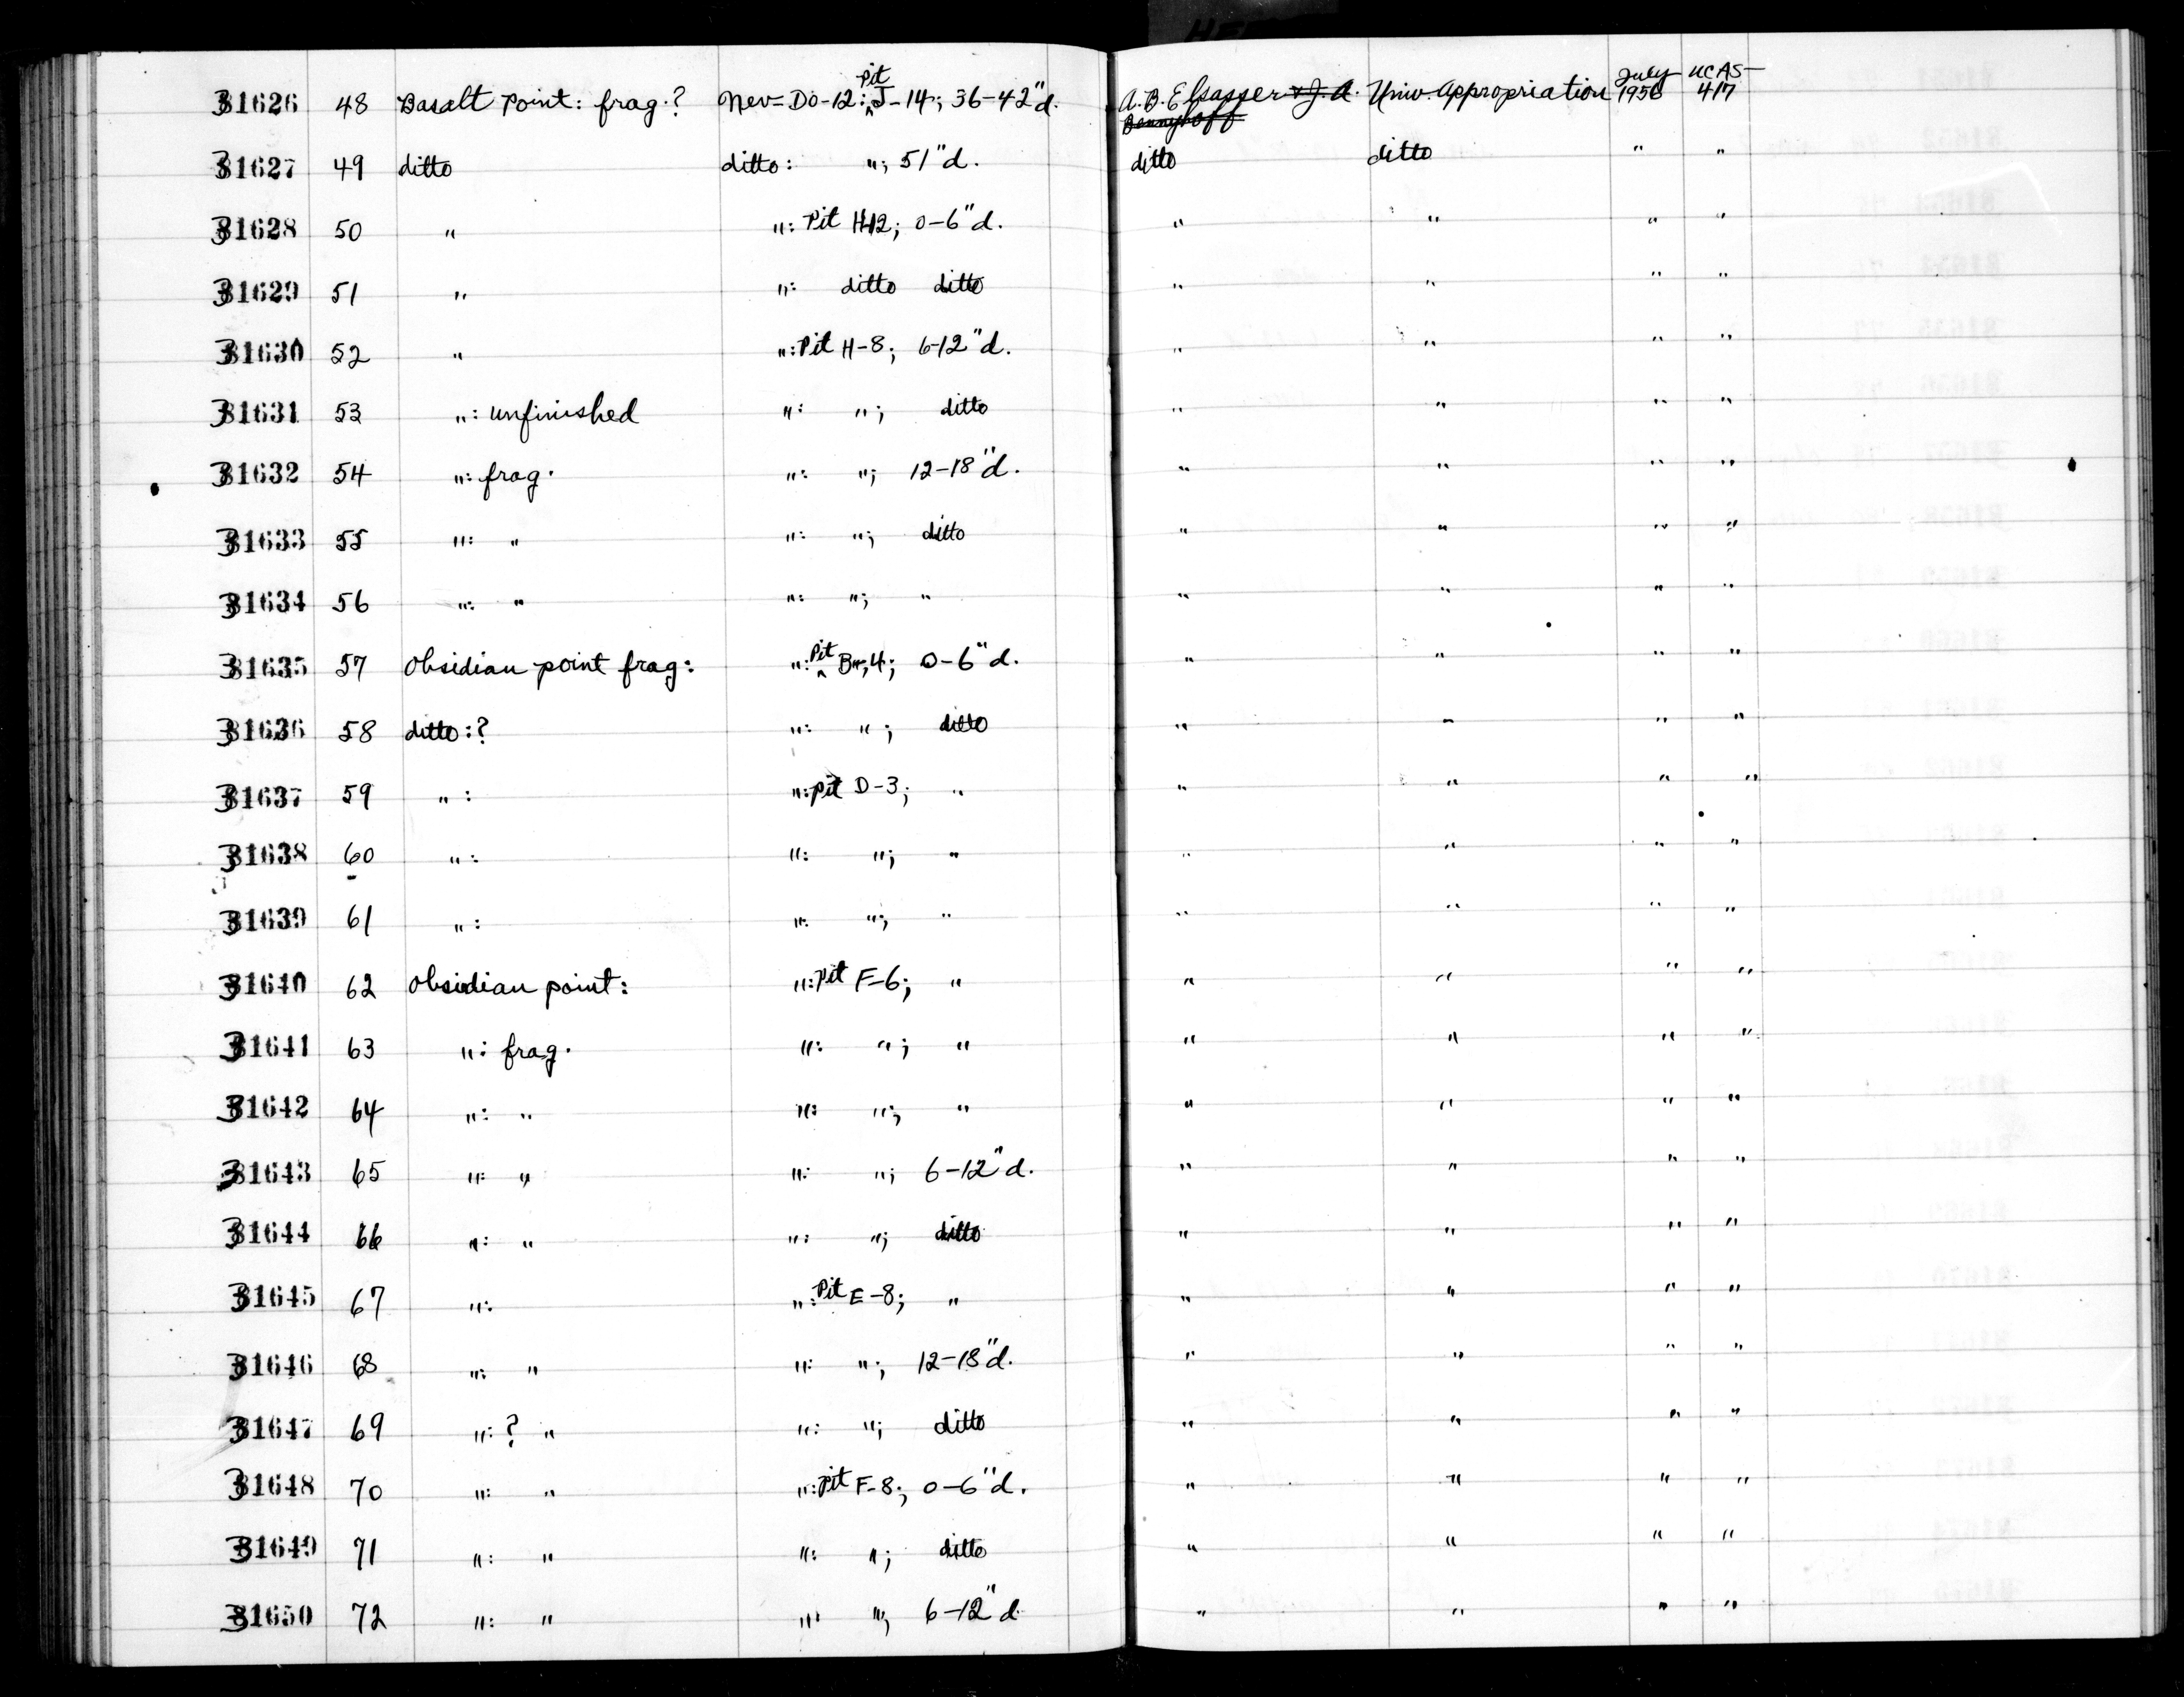 31626 48 Basalt Point: frag.? Nev-Do-12: Pit J-14; 36-42"d. A.B. Elsasser & J.A. Bennyhoff Univ. Appropriation July 1956 UCAS-417
31627 49 ditto ditto: "; 51"d. ditto ditto " "
31628 50 " ": Pit H-12; 0-6"d. " " " "
31629 51 " ": ditto ditto " " " "
31630 52 " ": Pit H-8; 6-12"d. " " " "
31631 53 ": unfinished ": "; ditto " " " "
31632 54 ": frag. ": "; 12-18"d. " " " "
31633 55 ": " ": "; ditto " " " "
31634 56 ": " ": "; " " " " "
31635 57 Obsidian point frag: ": Pit B-4; 0-6"d. " " " "
31636 58 ditto:? ": "; ditto " " " "
31637 59 ": ": pit D-3; " " " " "
31638 60 ": ": "; " " " " "
31639 61 ": ": "; " " " " "
31640 62 Obsidian point: ": Pit F-6; " " " " "
31641 63 ": frag. ": "; " " " " "
31642 64 ": " ": "; " " " " "
31643 65 ": " ": "; 6-12"d. " " " "
31644 66 ": " ": "; ditto " " " "
31645 67 ": ": Pit E-8; " " " " "
31646 68 ": " ": "; 12-18"d. " " " "
31647 69 ": ? " ": "; ditto " " " "
31648 70 ": " ": Pit F-8; 0-6"d. " " " "
31649 71 ": " ": "; ditto " " " "
31650 72 ": " ": "; 6-12"d. " " " "